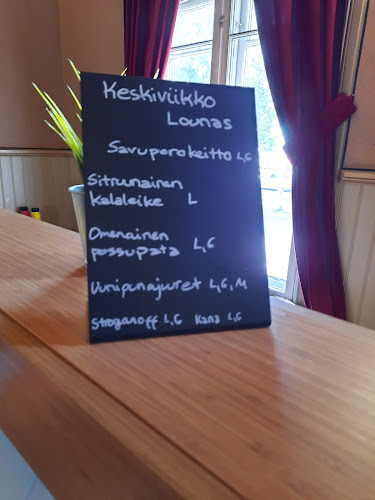 Keskiviikko
Lounas
Savuporokeitto L,G
Sitruunainen
kalaleike L
Omenainen
possupata L,G
Uunipunajuuret L,G,M
Stroganoff L,G Kana L,G